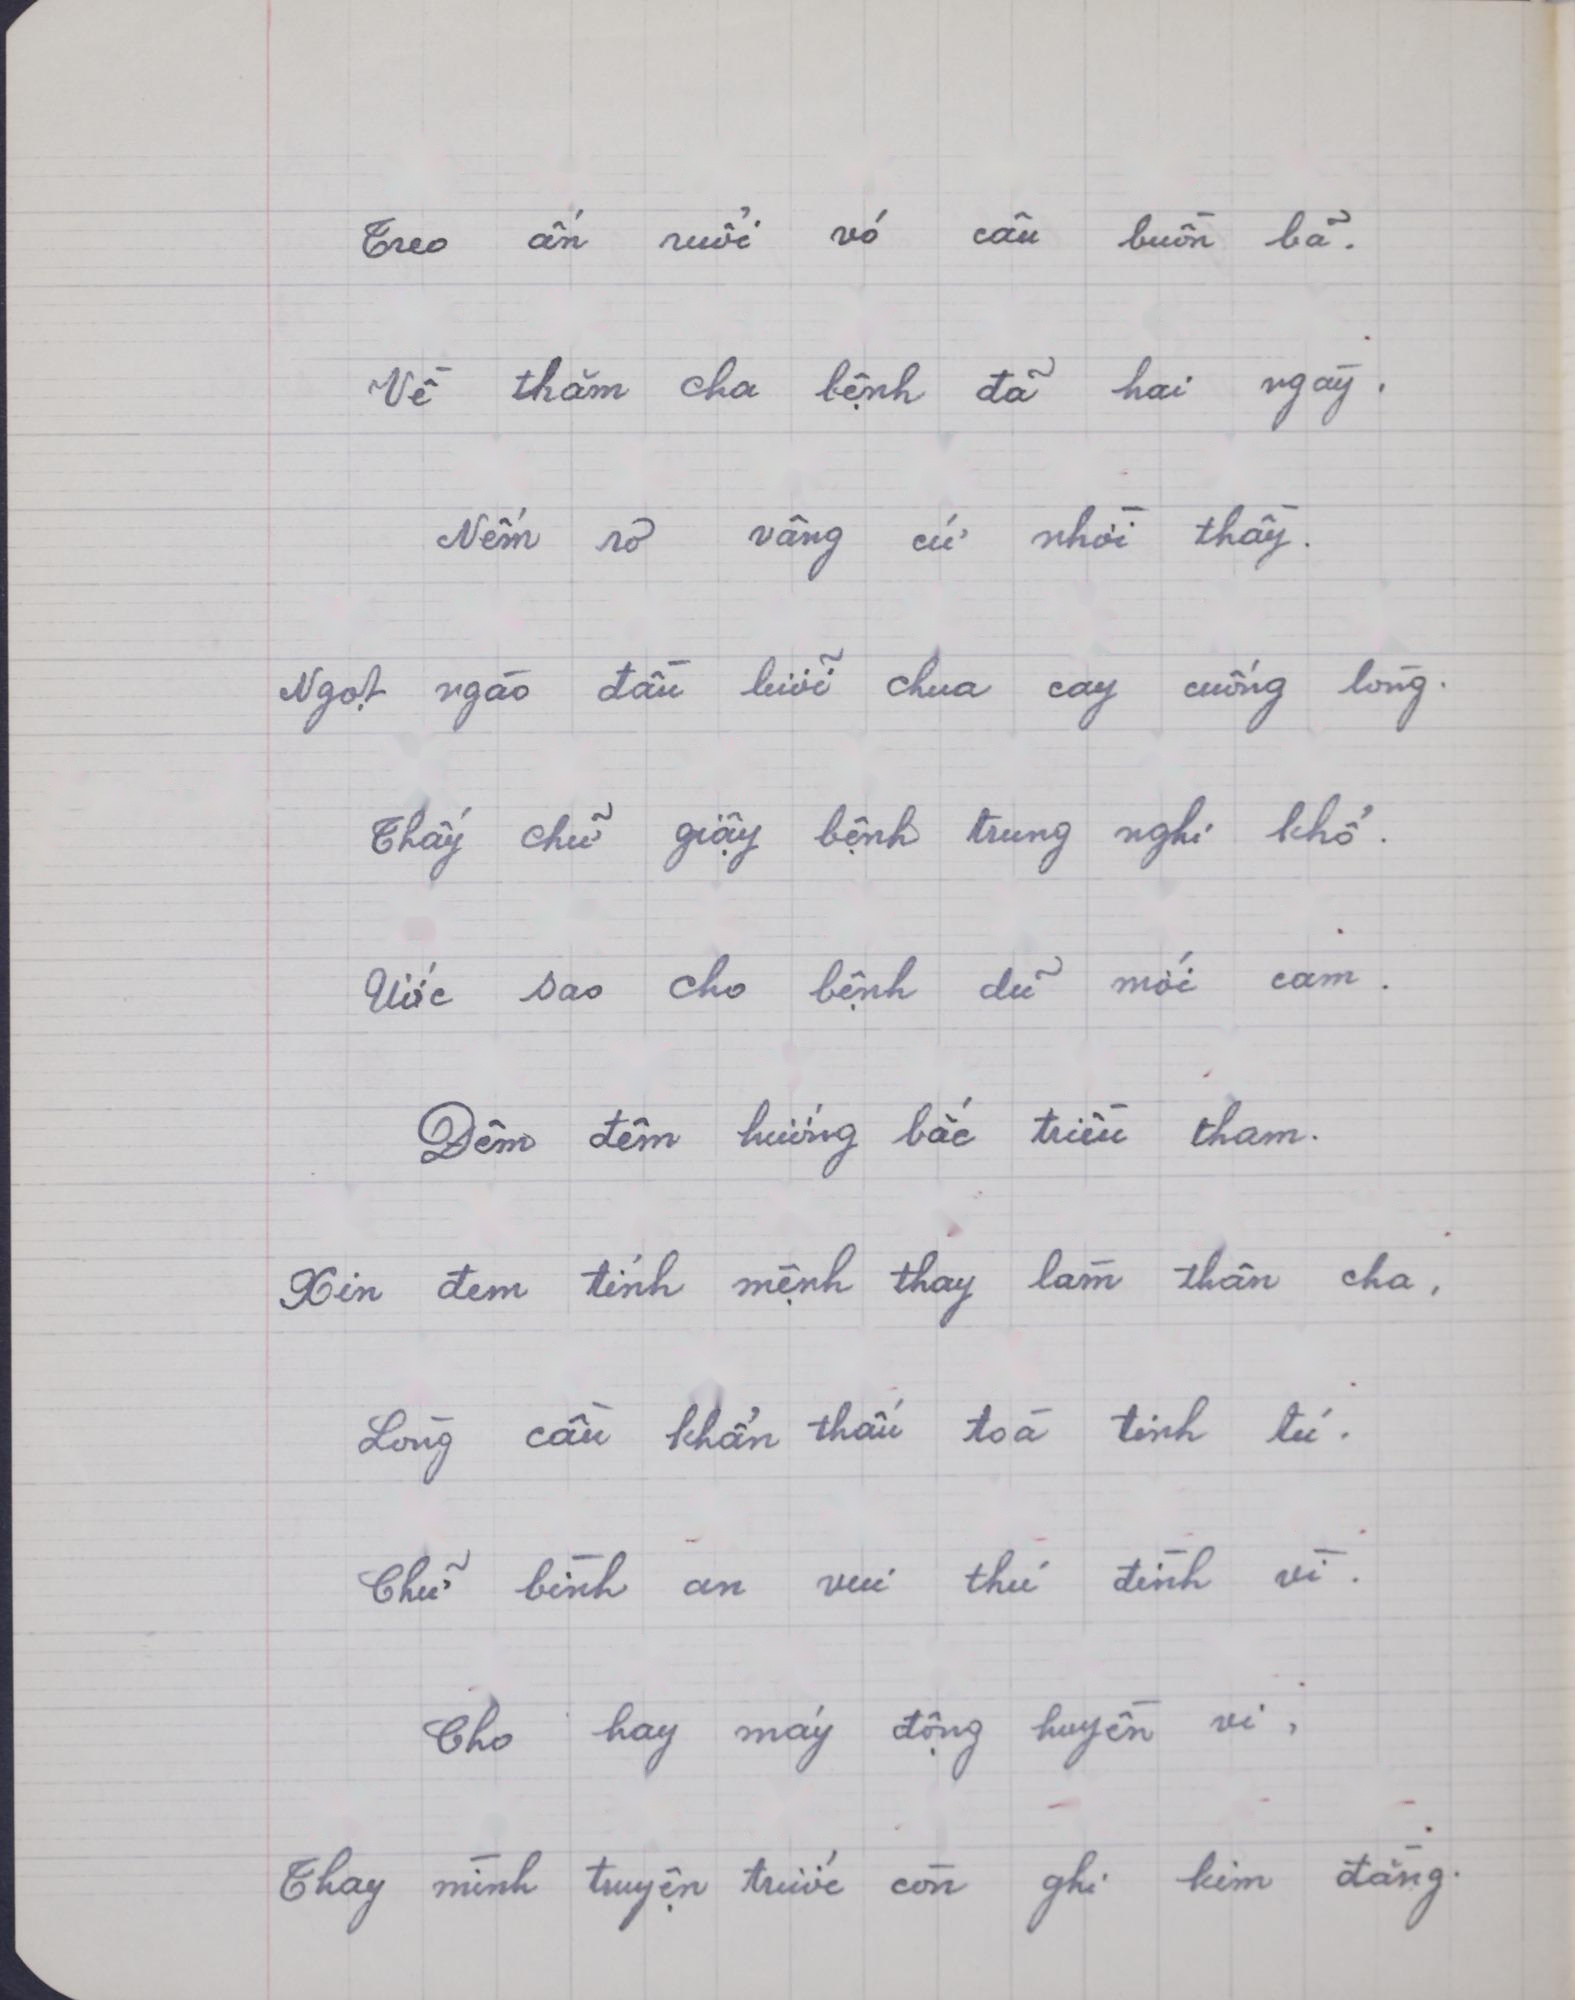 Treo ấn ruổi vó câu buồn bã.
Về thăm cha bệnh đã hai ngày.
Nếm rõ vâng cứ nhời thầy.
Ngọt ngào đầu lưỡi chua cay cuống lòng.
Thấy chữ giậy bệnh trung nghi khổ.
Ước sao cho bệnh dữ mới cam.
Đêm đêm hướng bắc triều tham.
Xin đem tính mệnh thay làm thân cha,
Lòng cầu khẩn thấu toà tinh tú.
Chữ bình an vui thú đình vi.
Cho hay máy động huyền vi,
Thay mình truyện trước còn ghi kim đằng.